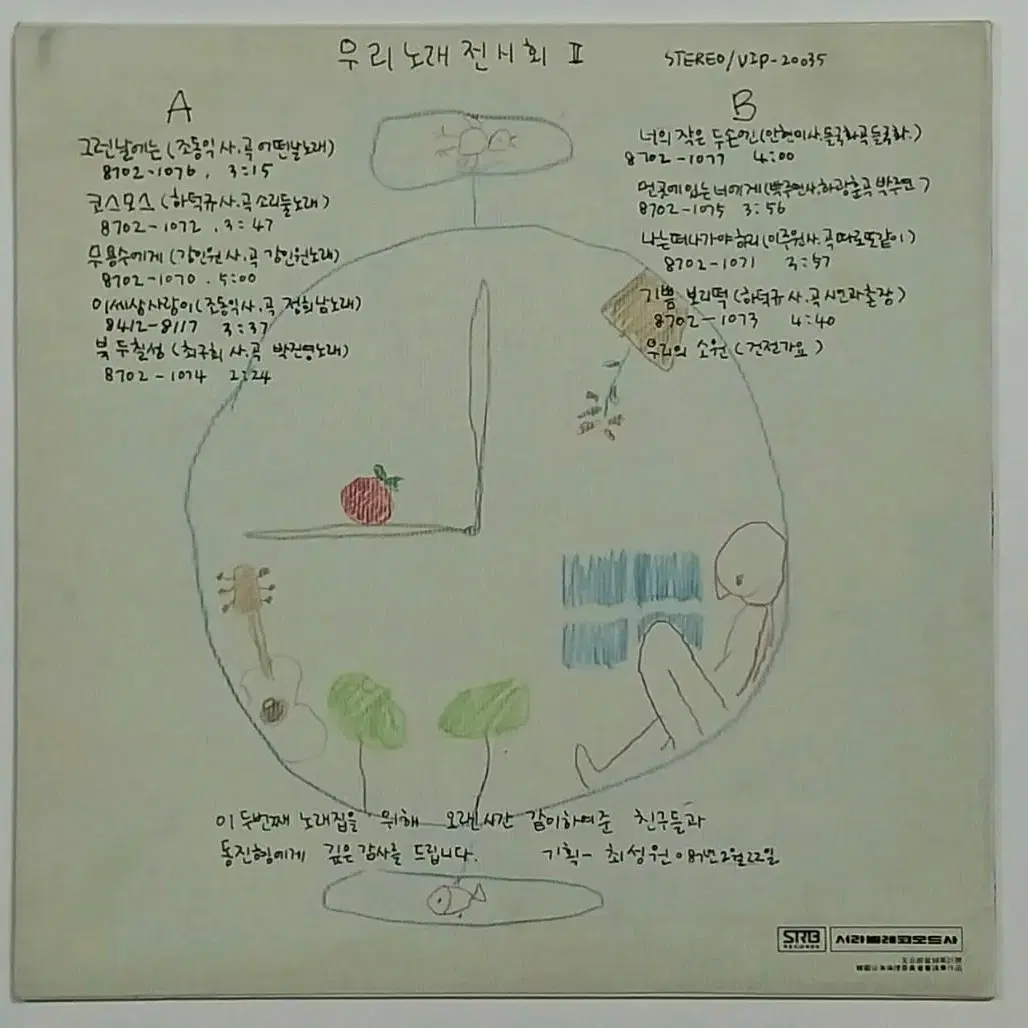 우리노래전시회 II
STEREO/VIP-20035
A
그런날에는 (조동익 사.곡 어떤날노래)
8702-1076. 3:15
코스모스 (하덕규 사.곡 소리들노래)
8702-1072. 3:47
무용수에게 (강인원 사.곡 강인원노래)
8702-1070. 5:00
이세상사랑이 (조동익사.곡 정희남노래)
8412-8117 3:37
북두칠성 (최구희 사.곡 박진영노래)
8702-1074 2:24
B
너의 작은 두손엔 (안현미사.들국화곡 들국화.)
8702-1077 4:00
먼곳에 있는 너에게 (박주연사.하광훈곡 박주연)
8702-1075 3:56
나는 떠나가야 하리 (이주원사.곡 따로또같이)
8702-1071 3:57
기쁨 보리떡 (하덕규 사.곡 시인과촌장)
8702-1073 4:40
우리의 소원 (건전가요)
이 두번째 노래집을 위해 오랜시간 같이하여준 친구들과
동진형에게 깊은감사를 드립니다. 기획- 최성원 87년2월22일
SRB 서라벌레코오드사